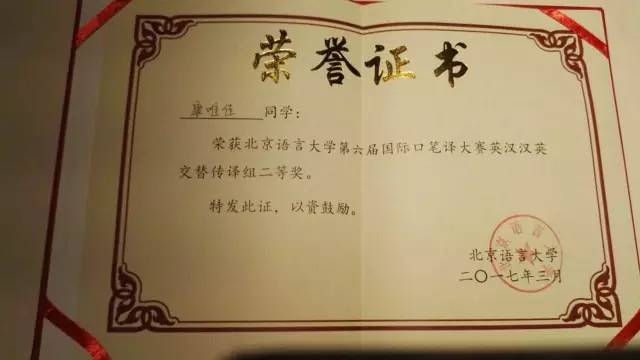 荣誉证书
康唯佳 同学：
荣获北京语言大学第六届国际口笔译大赛英汉汉英
交替传译组二等奖。
特发此证，以资鼓励。
北京语言大学
二〇一七年三月